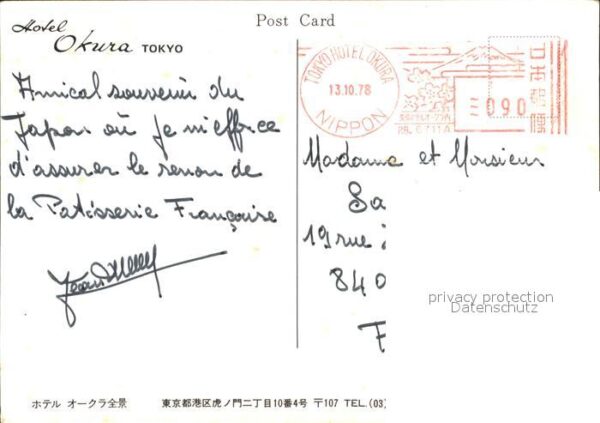 Hotel
Okura TOKYO
Post Card
Amical souvenir du
Japon où je m'efforce
d'assurer le renom de
la Patisserie Française
TOKYO HOTEL OKURA
13.10.78
NIPPON
090
日本郵便
Madame et Monsieur
Sa
19 rue
840
F
privacy protection
Datenschutz
ホテル オークラ全景
東京都港区虎ノ門二丁目10番4号 〒107 TEL.(03)